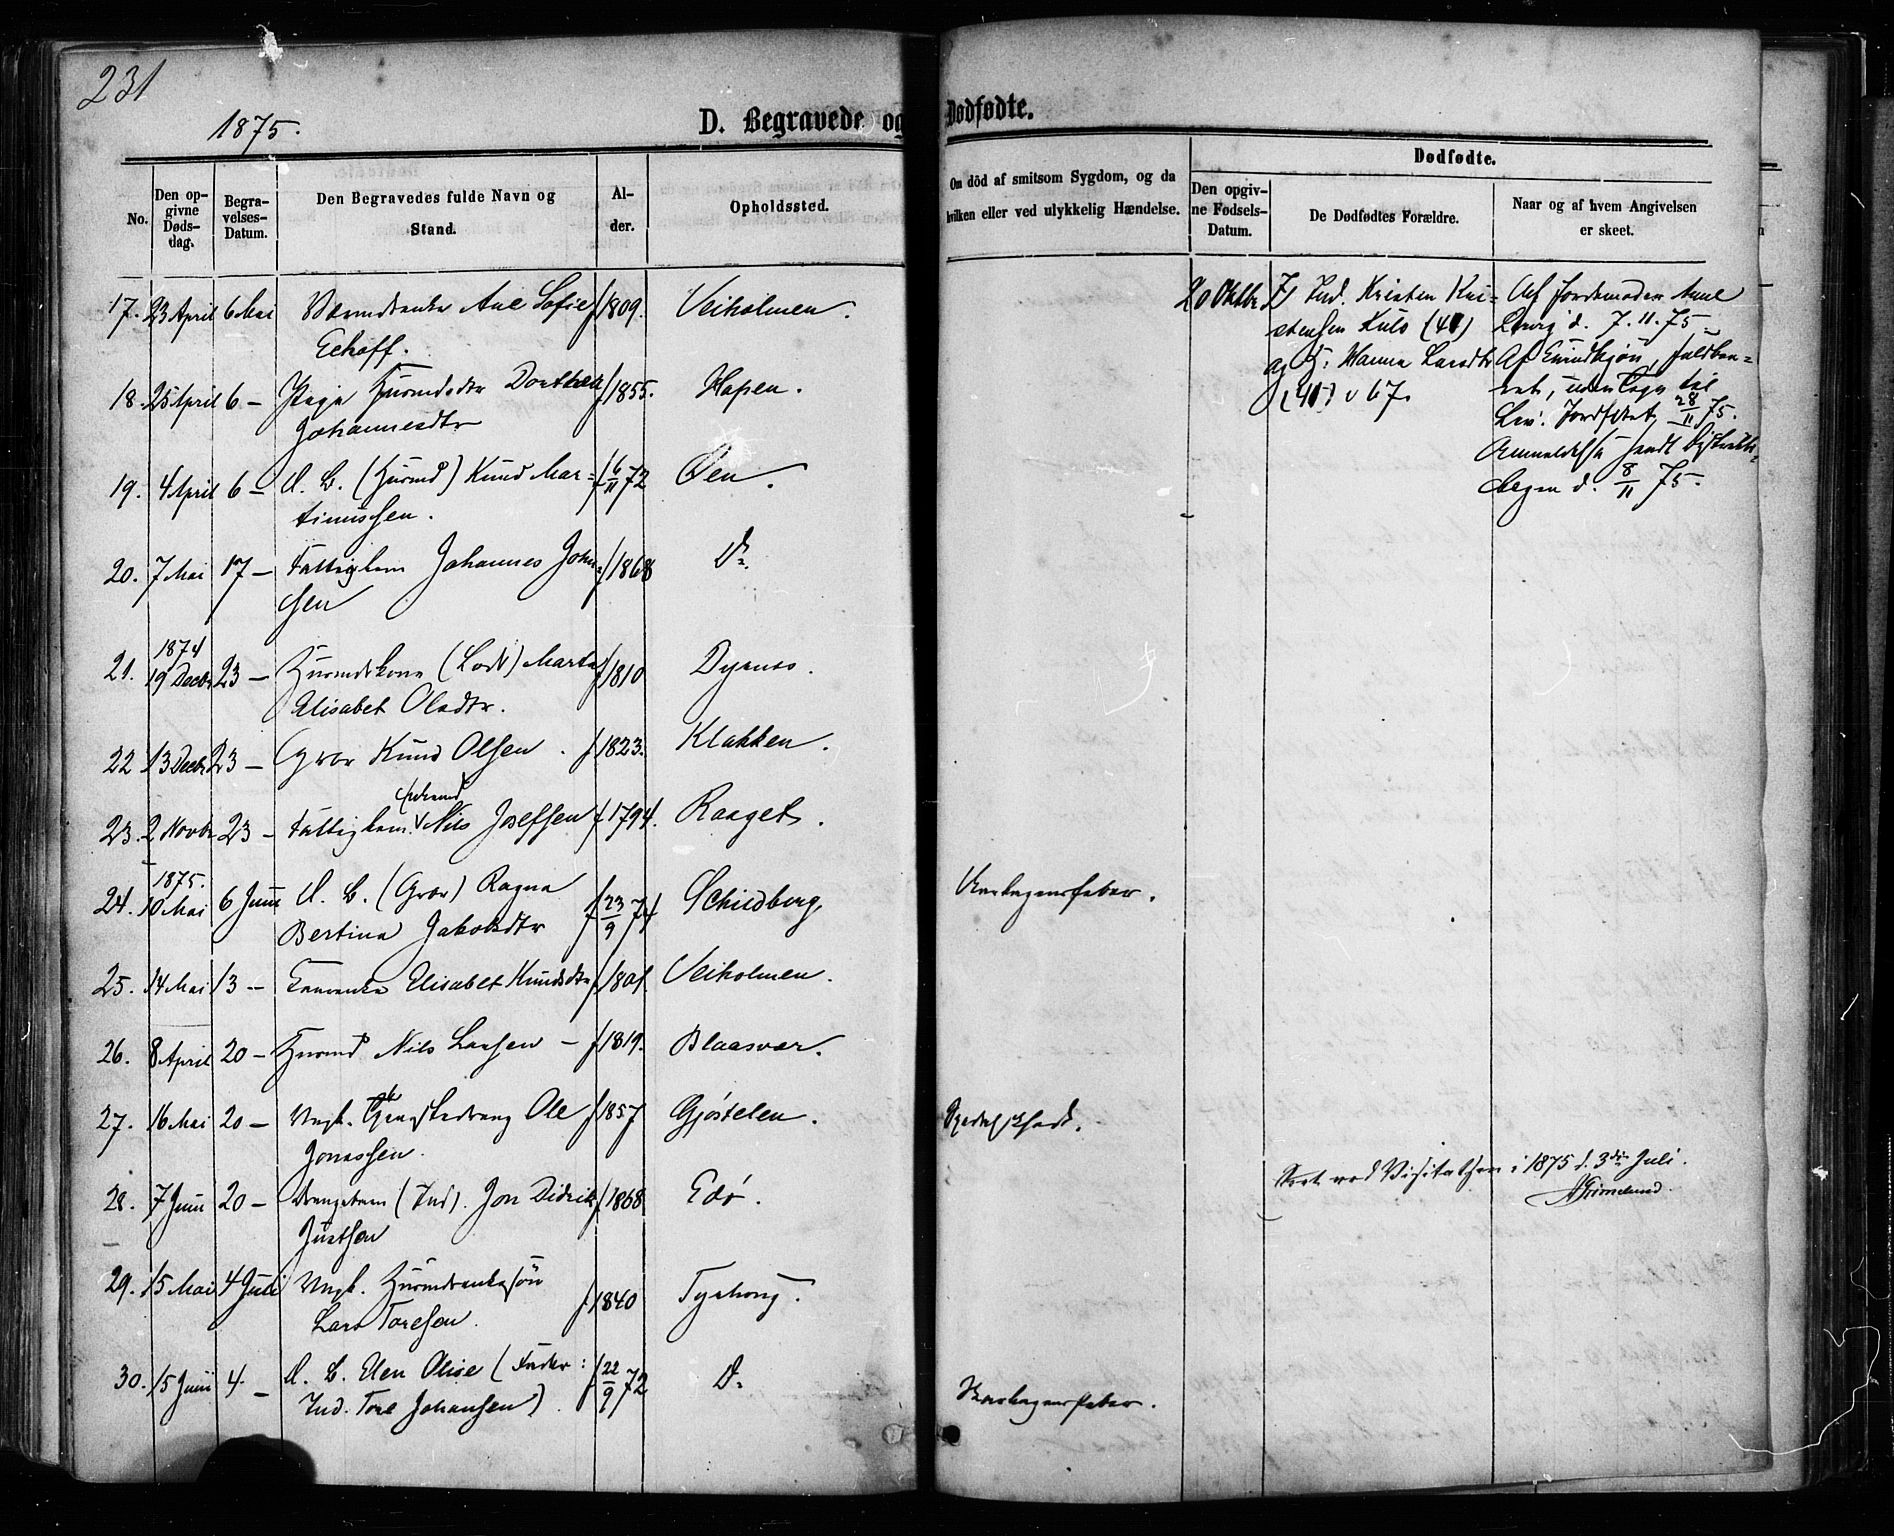 231
1875.
D. Begravede og Dødfødte.
No.
Den opgivne Dødsdag.
Begravelses-Datum.
Den Begravedes fulde Navn og Stand.
Alder.
Opholdssted.
Om död af smitsom Sygdom, og da hvilken eller ved ulykkelig Hændelse.
Dødfødte.
Den opgivne Fødsels-Datum.
De Dødfødtes Forældre.
Naar og af hvem Angivelsen er skeet.
17. 23 April 6 Mai Ane Sofie f 1809. Veiholmen.
Echoff.
18. 25 April 6 – Pige Husmdsdtr Dorthea f 1855. Hopen.
Johannesdtr
19. 4 April 6 – U. B. (Husmd) Knud Mar= f 6/11 72 Øen.
tinussen.
20. 7 Mai 17 – Fattiglem Johannes John= f 1868 Do
sen
1874
21. 19 Decbr 23 – Husmdskone (Lods) Marta f 1810 Dyrnes.
Elisabet Olsdtr.
22 13 Decbr 23 – Gror Knud Olsen. f 1823. Klakken.
23. 2 Novbr 23 – Fattiglem Nils Joseffsen f 1794. Raaget.
1875.
24. 10 Mai 6 Juni U. B. (Gror) Ragna
Bertina Jakobsdtr f 23/9 74 Schildberg
25. 14 Mai 13 – Elisabet Knudsdtr f 1801. Veiholmen.
26. 8 April 20 – Husmd Nils Larsen – f 1819. Blaasvær.
27. 16 Mai 20 – Ungk. Ole f 1857 Gjøstelen.
Jonassen.
28. 7 Juni 20 – (Ind). Jon Didrik f 1868 Edø.
Justsen
29. 15 Mai 4 Juli Ungk. Husmdsenkesøn
Lars Toresen. f 1840 Tyrhoug.
30. 15 Juni 4. – U. B. Elen Olise (Fader: f 22/9 72 Do
Ind. Tore Johansen)
Skarlagensfeber.
Spedalskhed.
Skarlagensfeber.
20 Oktbr Ind. Kristen Kri=
stensen Kulø (41)
og H. Hanna Larsdtr
(41) v 67.
Af Jordemoder Anne
d. 7.11.75
Af fuldbaa=
ret, uden Tegn til
Liv. Jordfæstet 28/11 75.
Anmeldelse sendt Distrikts=
lægen d. 8/11 75.
Seet ved Visitatsen i 1875 d. 3die Juli.
Grimelund.